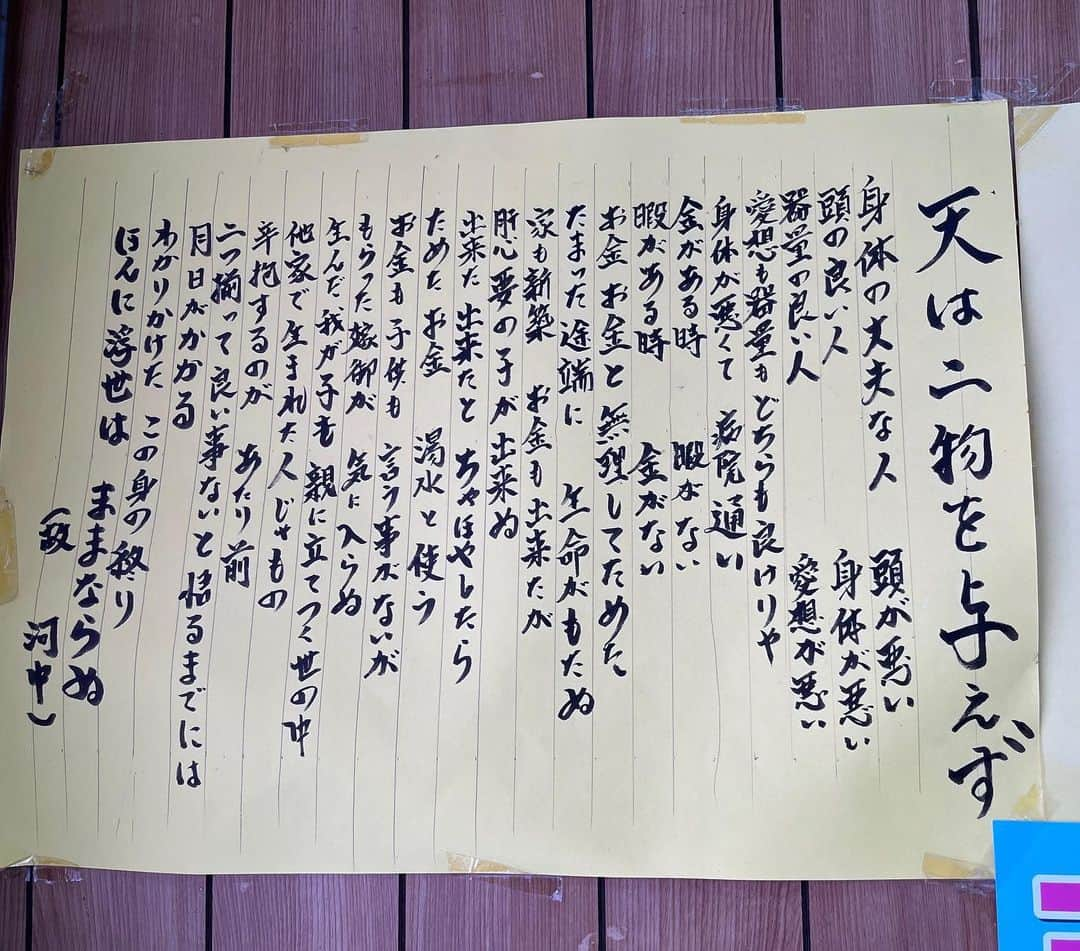 天は二物を与えず
身体の丈夫な人 頭が悪い
頭の良い人 身体が悪い
器量の良い人 愛想が悪い
愛想も器量もどちらも良けりや
身体が悪くて 病院通い
金がある時 暇がない
暇がある時 金がない
お金お金と 無理してためた
たまった途端に 生命がもたぬ
家も新築 お金も出来たが
肝心要の子が出来ぬ
出来た 出来たと ちやほやしたら
ためたお金 湯水と使う
お金も子供も 言う事がないが
もらった嫁御が 気に入らぬ
生んだ我が子も 親に立てつく世の中
他家で生まれた人じゃもの
辛抱するのが あたり前
二つ揃って良い事ないと 悟るまでには
月日がかかる
わかりかけた この身の終り
ほんに浮世は ままならぬ
(故 河中)